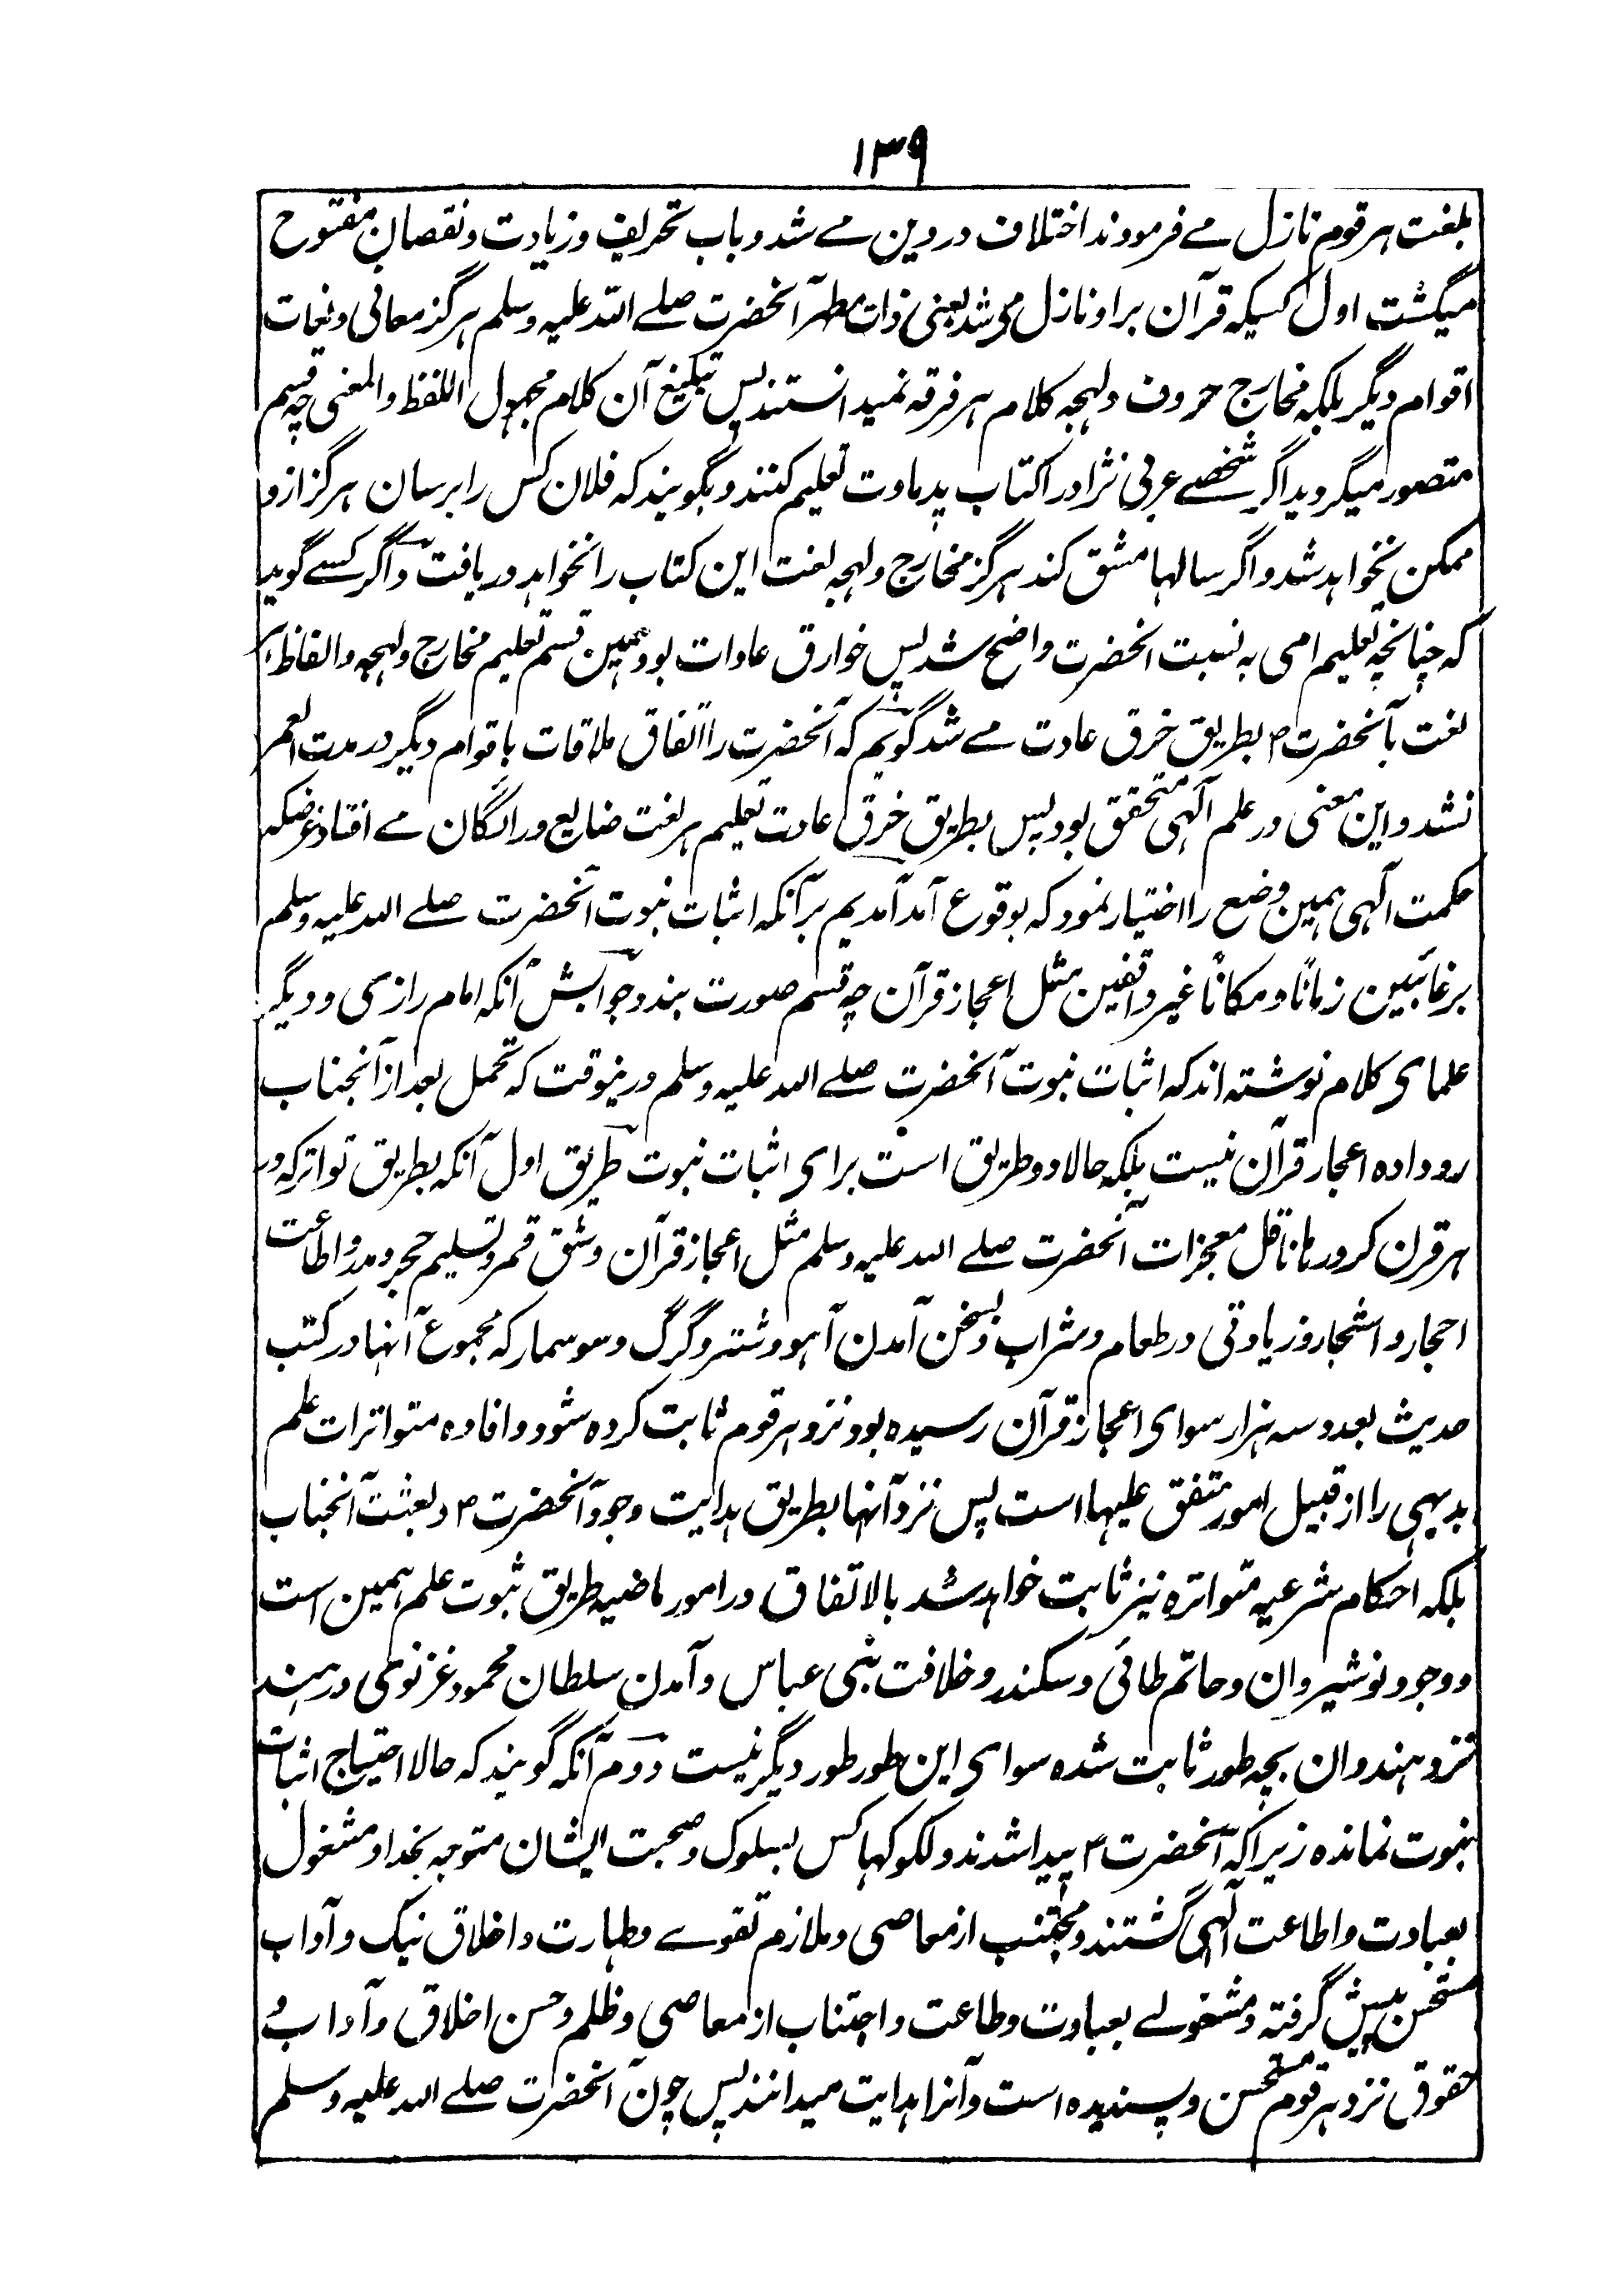 ۱۳۹
بلغت هر قوم نازل مے فرمودند اختلاف در دین مے شد و باب تحریف و زیادت و نقصان مفتوح
میگشت اول کسیکه قرآن براو نازل می شد یعنی ذات مطهر آنحضرت صلے الله علیه وسلم هرگز معانی و لغات
اقوام دیگر بلکه مخارج حروف و لهجه کلام هر فرقه نمیدانستند پس تبلیغ آن کلام مجهول اللفظ والمعنی چه قسم
متصور میگردید اگر شخصے عربی نژاد را کتاب پدماوت تعلیم کنند و بگویند که فلان کس را برسان هرگز ازو
ممکن نخواهد شد و اگر سالها مشق کند هرگز مخارج و لهجه لغت این کتاب را نخواهد دریافت و اگر کسے گوید
که چنانچه تعلیم امی به نسبت انحضرت واضح شد پس خوارق عادات بود همین قسم تعلیم مخارج و لهجه و الفاظ هر
لغت بآنحضرت ۳ بطریق خرق عادت مے شد گویم که آنحضرت را اتفاق ملاقات باقوام دیگر در مدت العمر
نشد و این معنی در علم آلهی متحقق بود پس بطریق خرق عادت تعلیم هر لغت ضایع و رائگان مے افتاد غرضکه
حکمت آلهی همین وضع را اختیار نمود که بوقوع آمد آمدیم بر آنکه اثبات نبوت آنحضرت صلے الله علیه وسلم
بر غائبین زماناً و مکاناً غیر واقفین مثل اعجاز قرآن چه قسم صورت بندد جوابش آنکه امام رازی و دیگر
علمای کلام نوشته اند که اثبات نبوت آنحضرت صلے الله علیه وسلم درینوقت که تحمل بعد از آنجناب
روداده اعجاز قرآن نیست بلکه حالا دو طریق است برای اثبات نبوت طریق اول آنکه بطریق تواتر که در
هر قرن کرورها ناقل معجزات آنحضرت صلے الله علیه وسلم مثل اعجاز قرآن و شق قمر و تسلیم حجر و مدر و اطاعت
احجار و اشجار و زیادتی در طعام و شراب و بسخن آمدن آهو و شتر و گرگ و سوسمار که مجموع آنها در کتب
حدیث بعدد سه هزار سوای اعجاز قرآن رسیده بود نزد هر قوم ثابت کرده شود و افاده متواترات علم
بدیهی را از قبیل امور متفق علیها است پس نزد آنها بطریق بداهت وجود آنحضرت ۳ و بعثت آنجناب
بلکه احکام شرعیه متواتره نیز ثابت خواهد شد بالاتفاق در امور ماضیه طریق ثبوت علم همین است
و وجود نوشیروان و حاتم طائی و سکندر و خلافت بنی عباس و آمدن سلطان محمود غزنوی در هند
نزد هندوان بچه طور ثابت شده سوای این طور طور دیگر نیست دوم آنکه گویند که حالا احتیاج اثبات
نبوت نمانده زیرا که آنحضرت ۳ پیدا شدند و لکوکها کس بسلوک و صحبت ایشان متوجه بخدا و مشغول
بعبادت و اطاعت آلهی گشتند و مجتنب از معاصی و ملازم تقوے و طهارت و اخلاق نیک و آداب
مستحسن پیش گرفته و مشغولے بعبادت و طاعت و اجتناب از معاصی و ظلم و حسن اخلاق و آداب و
حقوق نزد هر قوم مستحسن و پسندیده است و آنرا هدایت میدانند پس چون آنحضرت صلے الله علیه وسلم